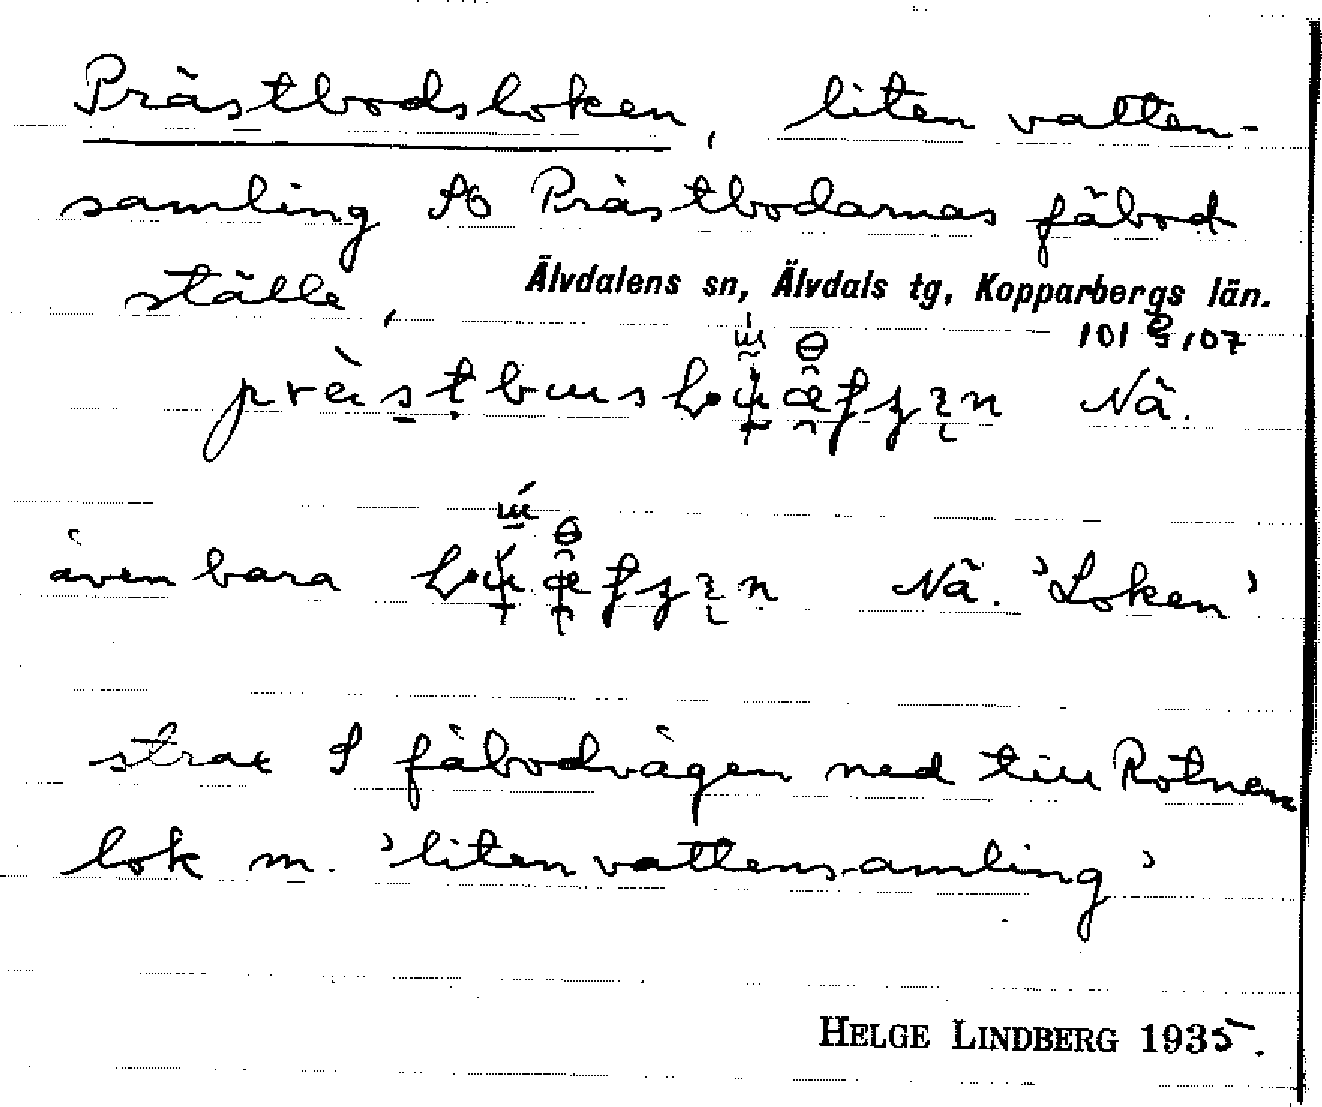 Prästbodsloken, liten vatten-
samling Ö Prästbodarnas fäbod
ställe,
Älvdalens sn, Älvdals tg, Kopparbergs län.
101 107
Nä.
även bara Nä. 'Loken'
strax S fäbodvägen ned till Rotnen
lok m. 'liten vattensamling'
HELGE LINDBERG 1935.